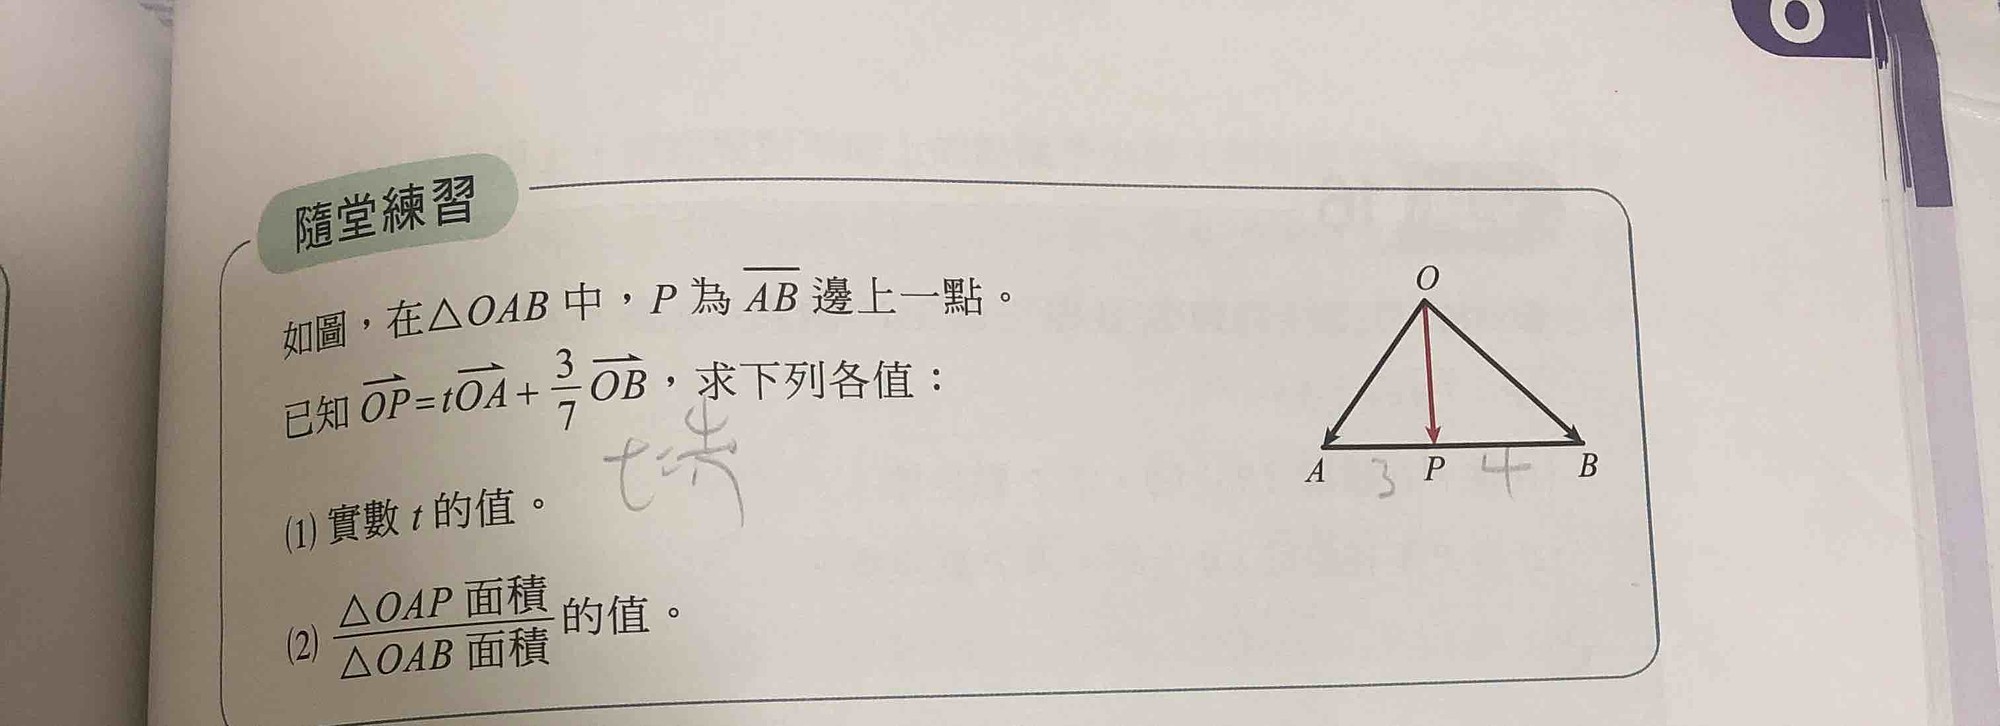 6
隨堂練習
如圖，在△OAB 中，P 為 AB 邊上一點。
已知 OP=tOA+3/7 OB，求下列各值：
(1) 實數 t 的值。
(2) △OAP 面積/△OAB 面積 的值。
O
A 3 P 4 B